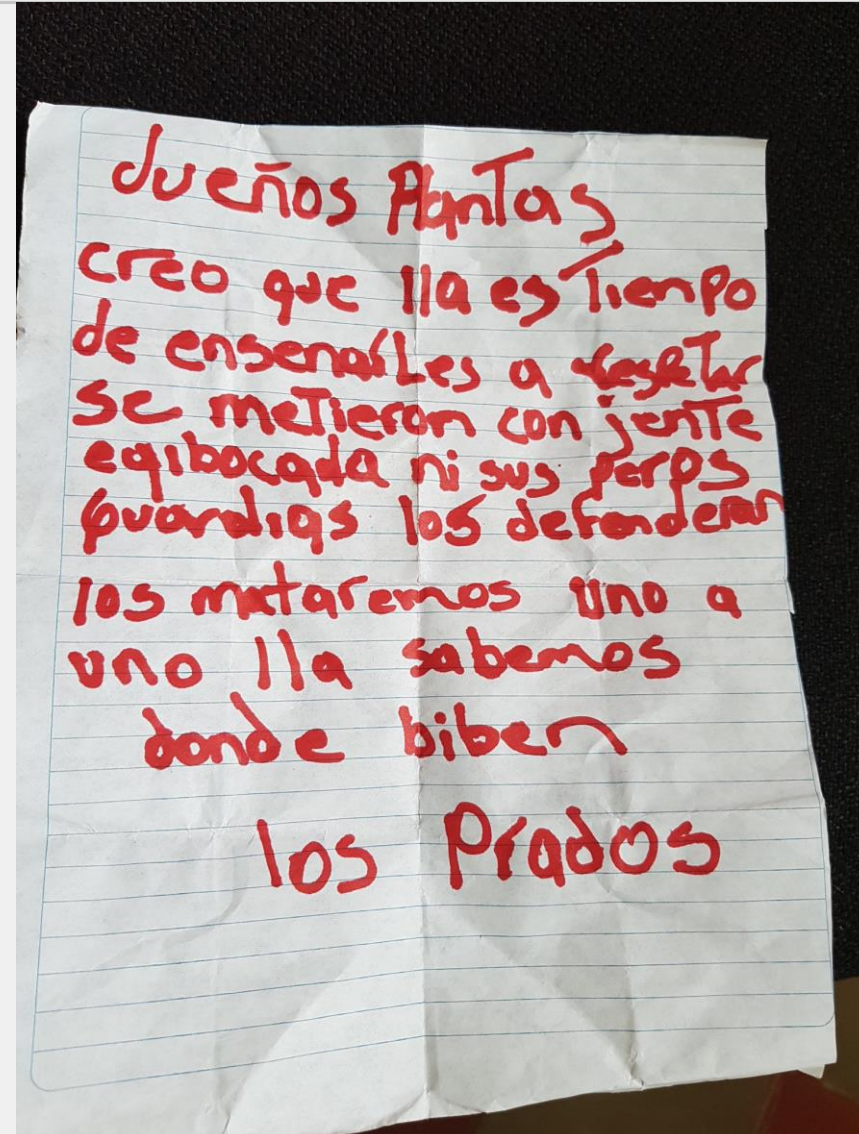 dueños Plantas
creo que lla es Tienpo
de ensenarLes a resetar
se meTieron con jenTe
eqibocada ni sus perros
guardias los defenderan
los mataremos uno a
uno lla sabemos
donde biben
los Prados